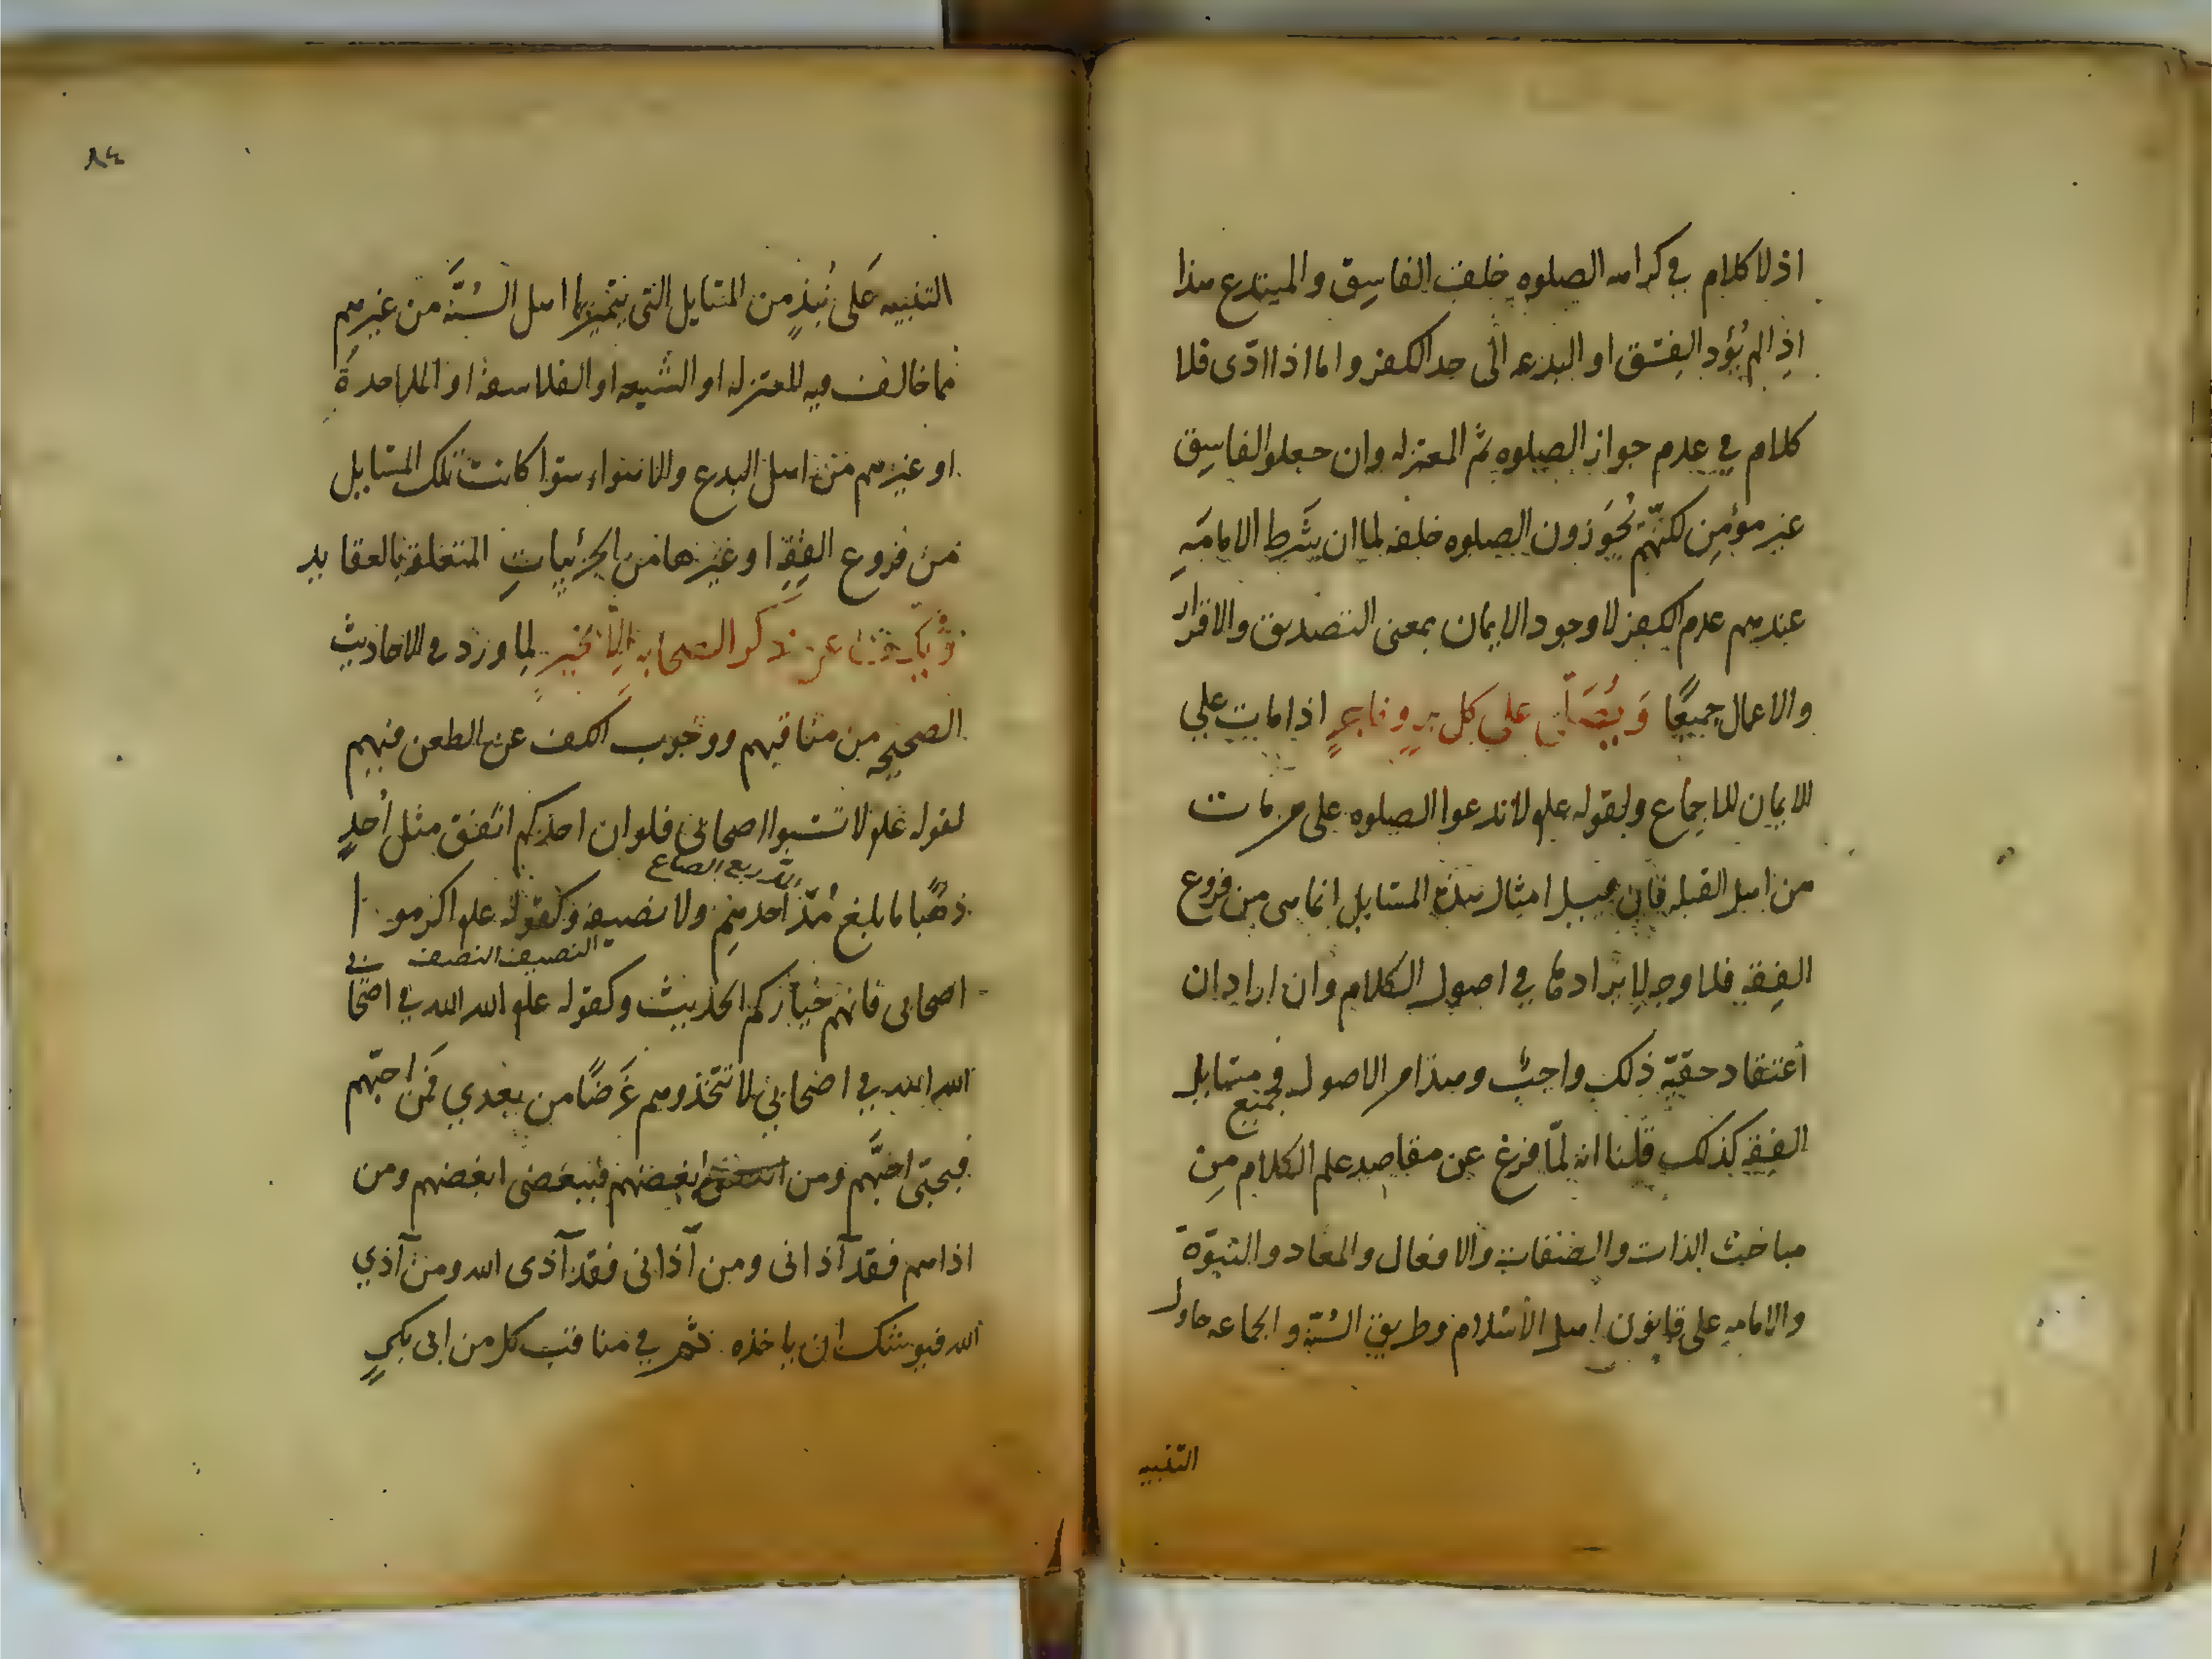 اذ لا كلام في كراهه الصلوه خلف الفاسق والمبتدع هذا
اذا لم يؤد الفسق او البدعه الى حد الكفر واما اذا ادّى فلا
كلام في عدم جواز الصلوه ثم المعتزله وان جعلوا الفاسق
غير مؤمن لكنّهم يُجوّزون الصلوه خلفه لما ان شرط الامامه
عندهم عدم الكفر لا وجود الايمان بمعنى التصديق والاقرار
والاعمال جميعًا وَيُصَلّى على كل برٍ وفاجرٍ اذا مات على
الايمان للاجماع ولقوله علم لا تدعوا الصلوه على من مات
من اهل القبله فان قيل امثال هذه المسايل انما هى من فروع
الفقه فلا وجه لايرادها في اصول الكلام وان اراد ان
اعتقاد حقيّه ذلك واجبٌ وهذا من الاصول فجميع مسايل
الفقه كذلك قلنا انه لمّا فرغ عن مقاصد علم الكلام من
مباحث الذات والصفات والافعال والمعاد والنبوّة
والامامه على قانون اهل الاسلام وطريق السُنّة والجماعه حاول
التنبيه
٨٤
التنبيه عَلى نُبَذٍ من المسايل التى يتميّز بها اهل السُنَّة من غيرهم
مما خالف فيه المعتزله او الشيعه او الفلاسفة او الملاحدة
او غيرهم من اهل البدع والاهواء سوا كانت تلك المسايل
من فروع الفِقهِ او غيرها من الجزئياتِ المتعلقة بالعقايد
ويُكفّ عن ذكر الصحابه الا بخيرٍ لِما ورد في الاحاديث
الصحيحه من مناقبهم ووجوب الكف عن الطعن فيهم
لقوله علم لا تسبوا اصحابى فلو ان احدكم انفق مثل اُحدٍ
المد ربع الصاع
ذهبًا ما بلغ مُدّ احدهم ولا نصيفه وكقوله علم اكرموا
النصيف النصف
اصحابى فانهم خياركم الحديث وكقوله علم الله الله في اصحابى
الله الله في اصحابي لا تتخذوهم غَرَضًا من بعدي فمَن احبّهم
فبحبّى احبَّهم ومن ابغضهم فببغضى ابغضهم ومن
اذاهم فقد آذانى ومن آذانى فقد آذى الله ومن آذي
الله فيوشك ان ياخذه ثم في مناقب كل من ابى بكرٍ